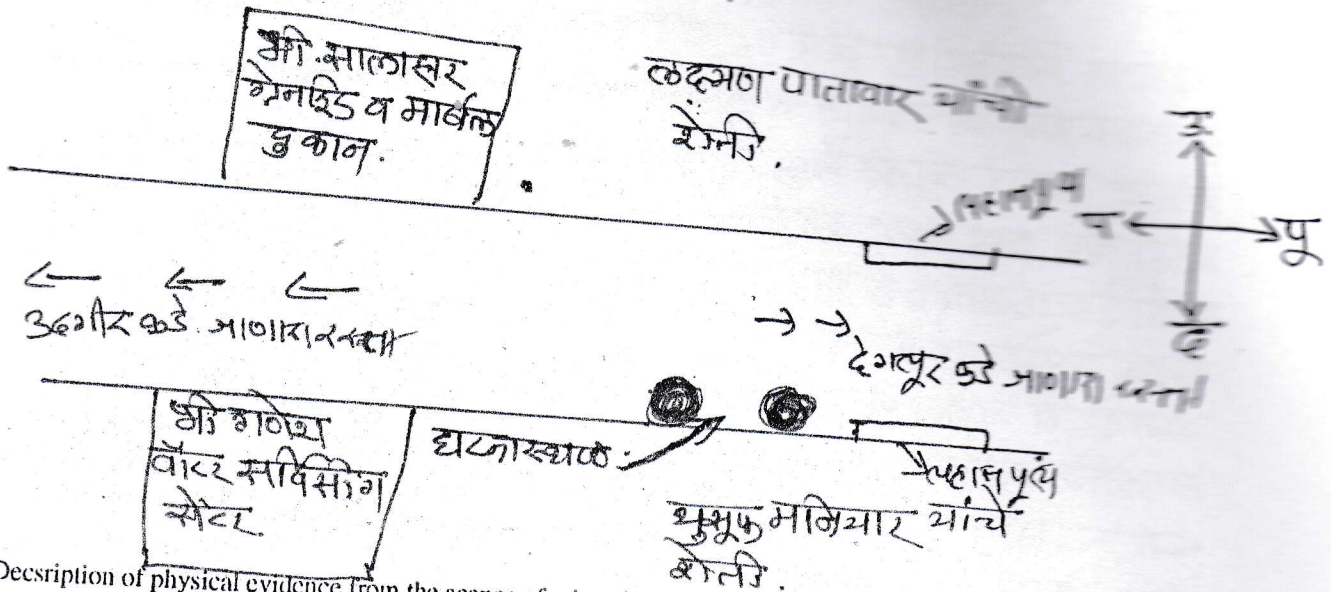 श्री.सालासर
ग्रेनाईड व मार्बल
दुकान.
लक्ष्मण पातावार यांची
शेती.
लहान पूल
उ
प
पू
द
उदगीर कडे जाणारा रस्ता
देगलूर कडे जाणारा रस्ता
श्री गणेश
वॉटर सर्विसींग
सेंटर
घटनास्थळ.
लहान पूल
युसूफ मनियार यांचे
शेती.
Decsription of physical evidence from the